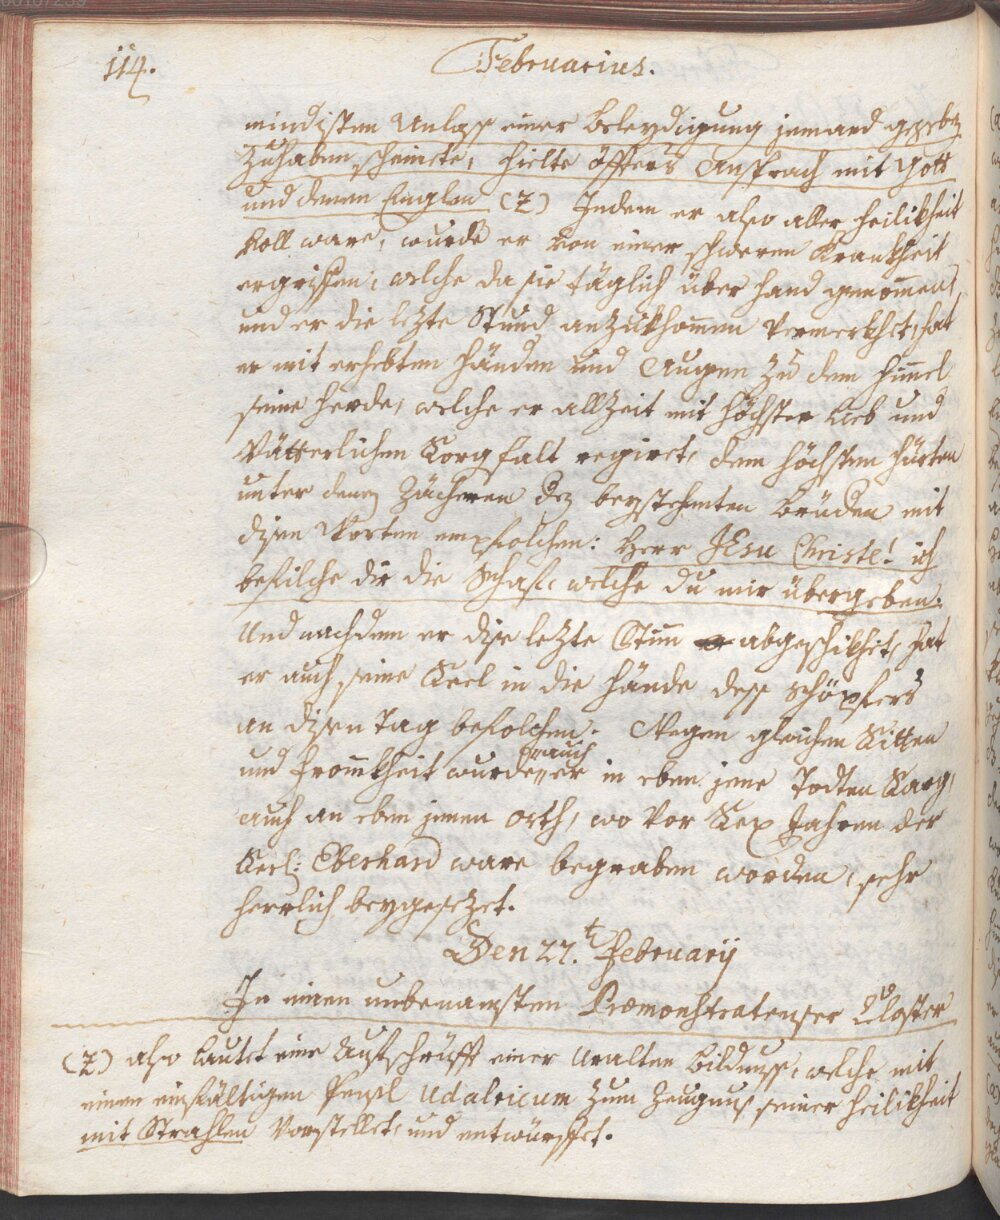 114.
Februarius.
mindisten Anlass einer beleydigung jemand gegeben
zuhaben scheinete, hielte öffters Ansprach mit Gott
und denen Englen (z) Indem er also aller heilikheit
voll ware, wurde er von einer schweren Krankheit
ergriffen, welche da sie täglich über hand genommen,
und er die lezte Stund anzukhommen vermerkhet, hat
er mit erhebten händen und Augen zu dem himmel
seine herde, welche er allzeit mit höchster Lieb und
Vätterlichen Sorgfalt regiret, dem höchsten hürten
unter denen Zächeren der beystehenten brüder mit
disen Worten empfolchen: Herr JEsu Christe! ich
befilche dir die Schaf, welche du mir übergeben.
Und nachdem er dise lezte Stim abgeschikhet, hat
er auch seine Seel in die hände dess Schöpfers
an disen tag befolchen. Wegen gleichen Sitten
und frommkheit wurde er auch in eben jene Todten Sarg,
auch an eben jenen orth, wo vor Sex Jahren der
Seel: Eberhard ware begraben worden, sehr
herrlich beygesezet.
Den 27.t Februarij
In einen unbenamsten Præmonstratenser Closter
(z) also lautet eine Aufschrüfft einer Uralten bildnuss, welche mit
einen einfältigen Pensl Udalricum zum Zeugnus seiner heilikheit
mit Strahlen Vorstellet, und entwürffet.